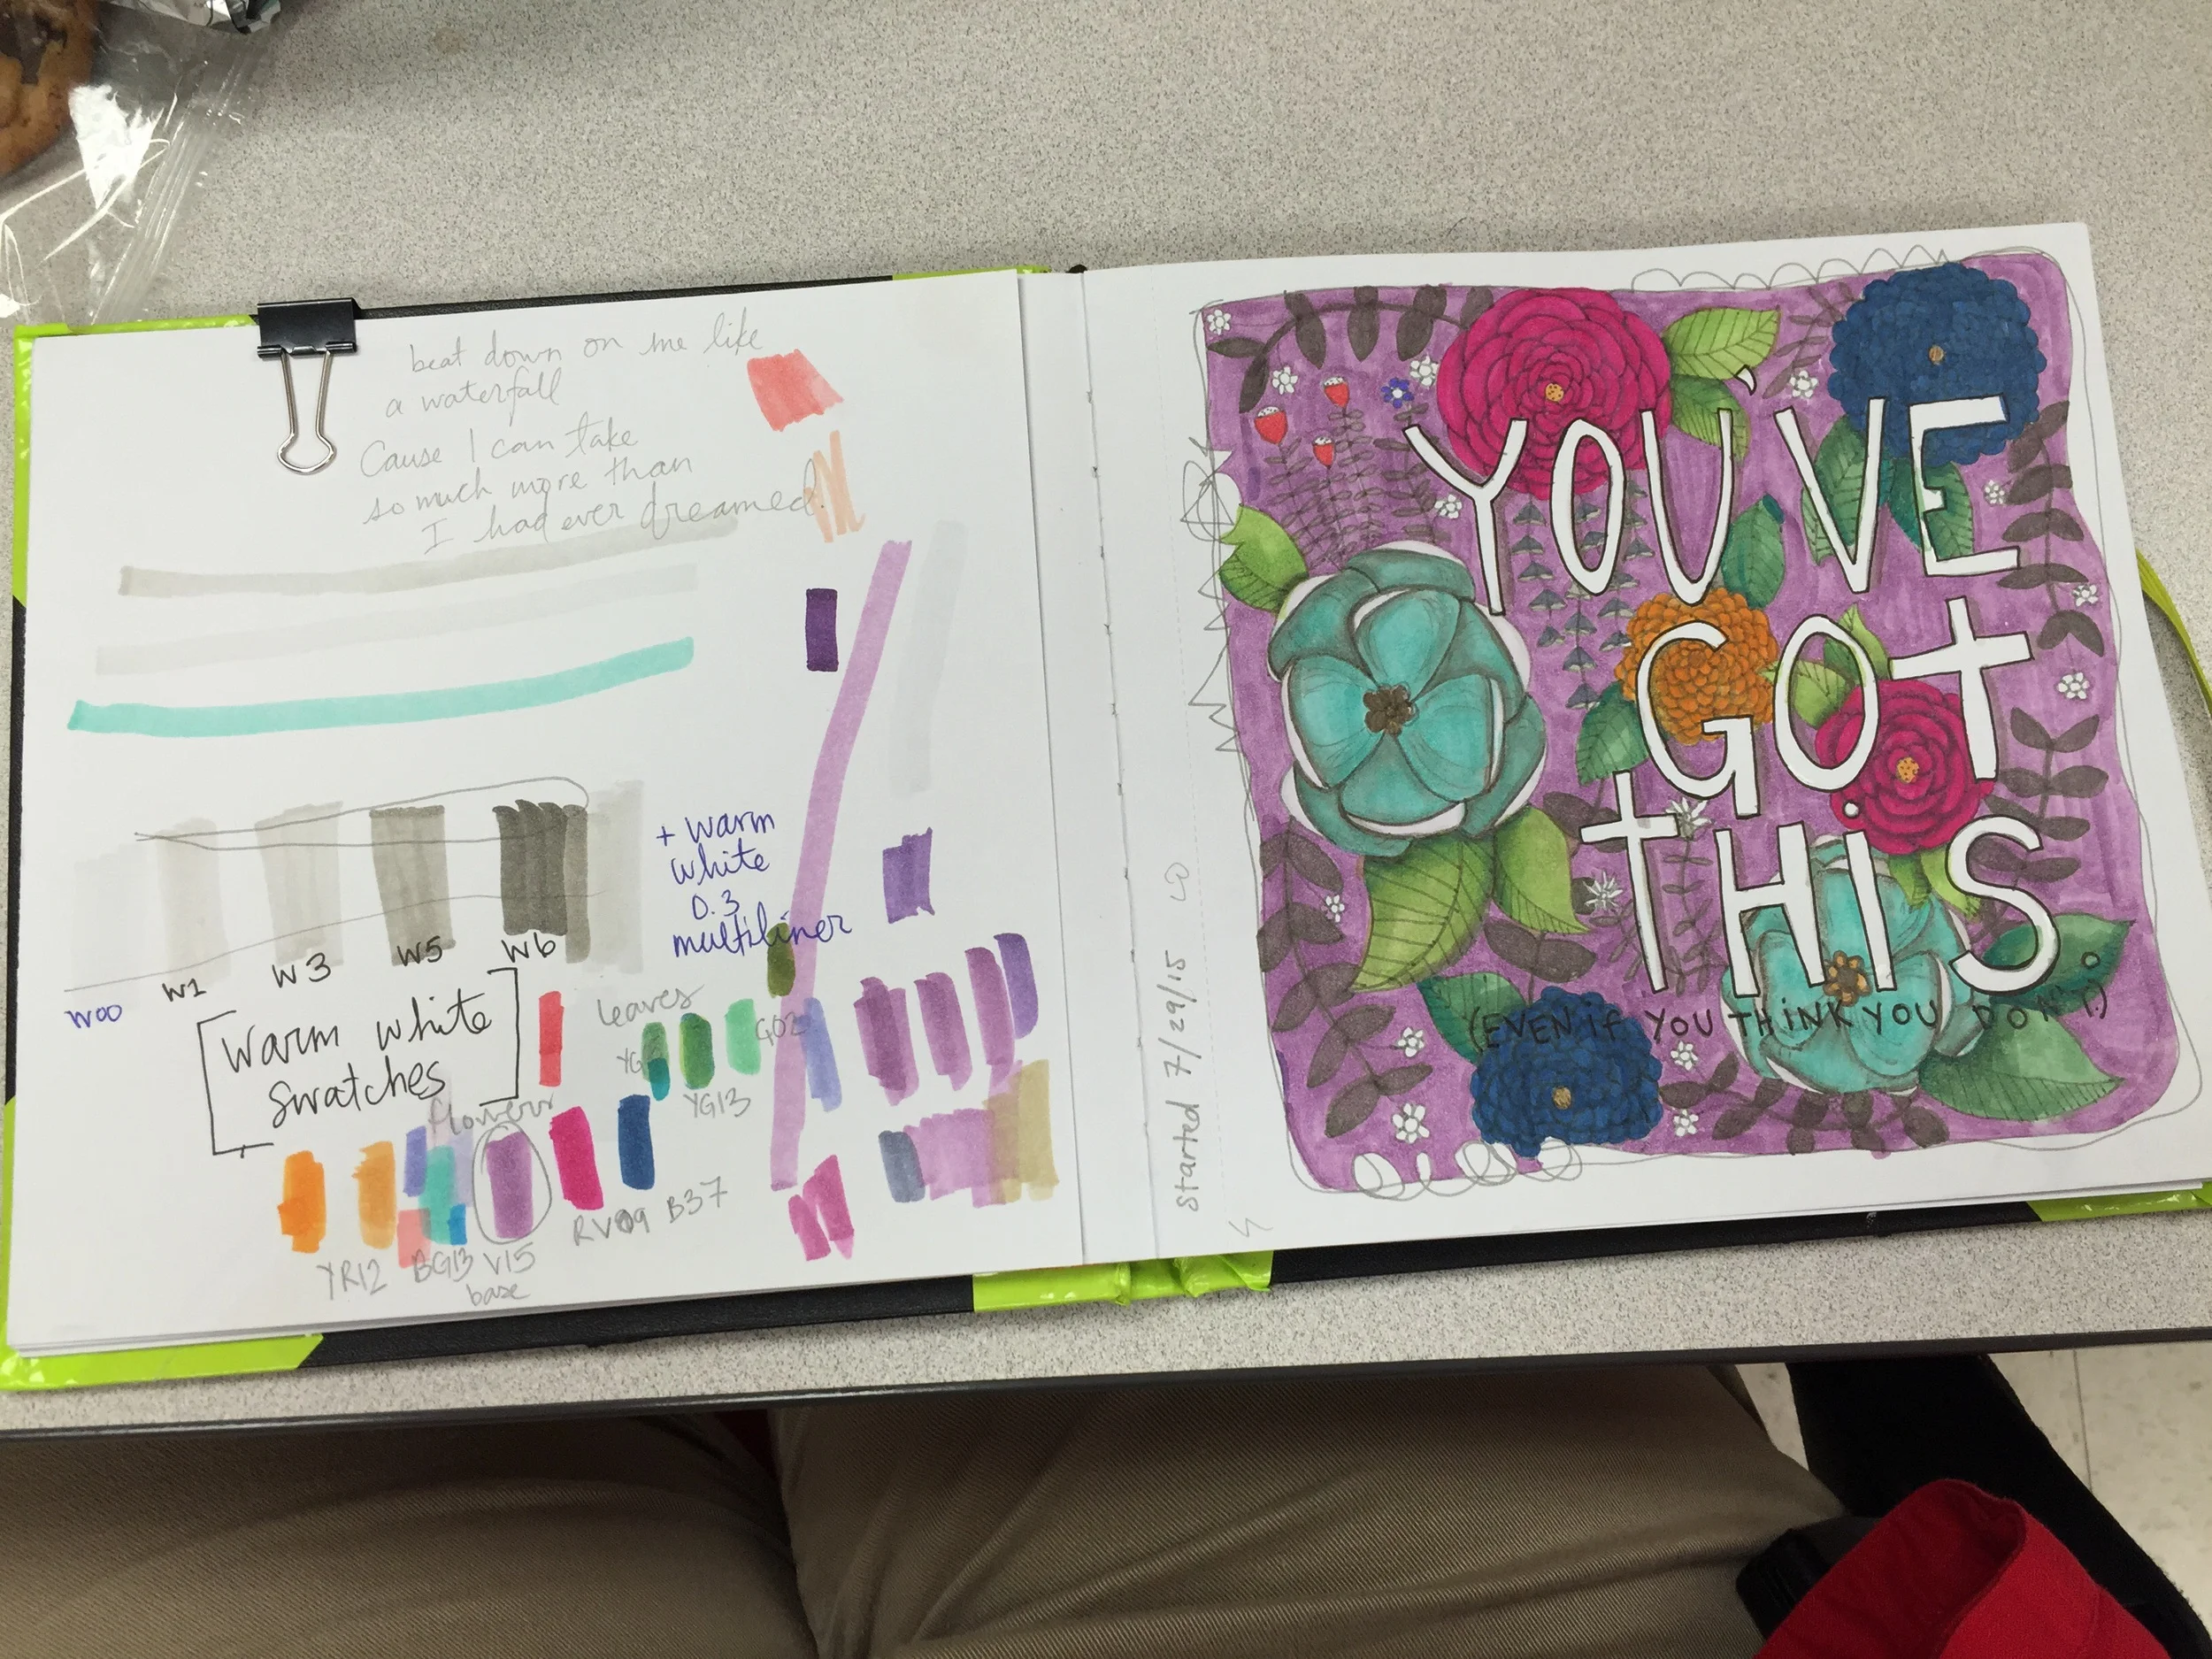 beat down on me like
a waterfall
Cause I can take
so much more than
I had ever dreamed.
+ warm
white
0.3
multiliner
W00 W1 W3 W5 W6
[Warm white
Swatches]
leaves
G02
YG13
flowers
YR12 BG13 V15 RV09 B37
base
started 7/29/15
YOU'VE
GOt
tHIS
(EVEN if YOU THiNK YOU DON'T.)